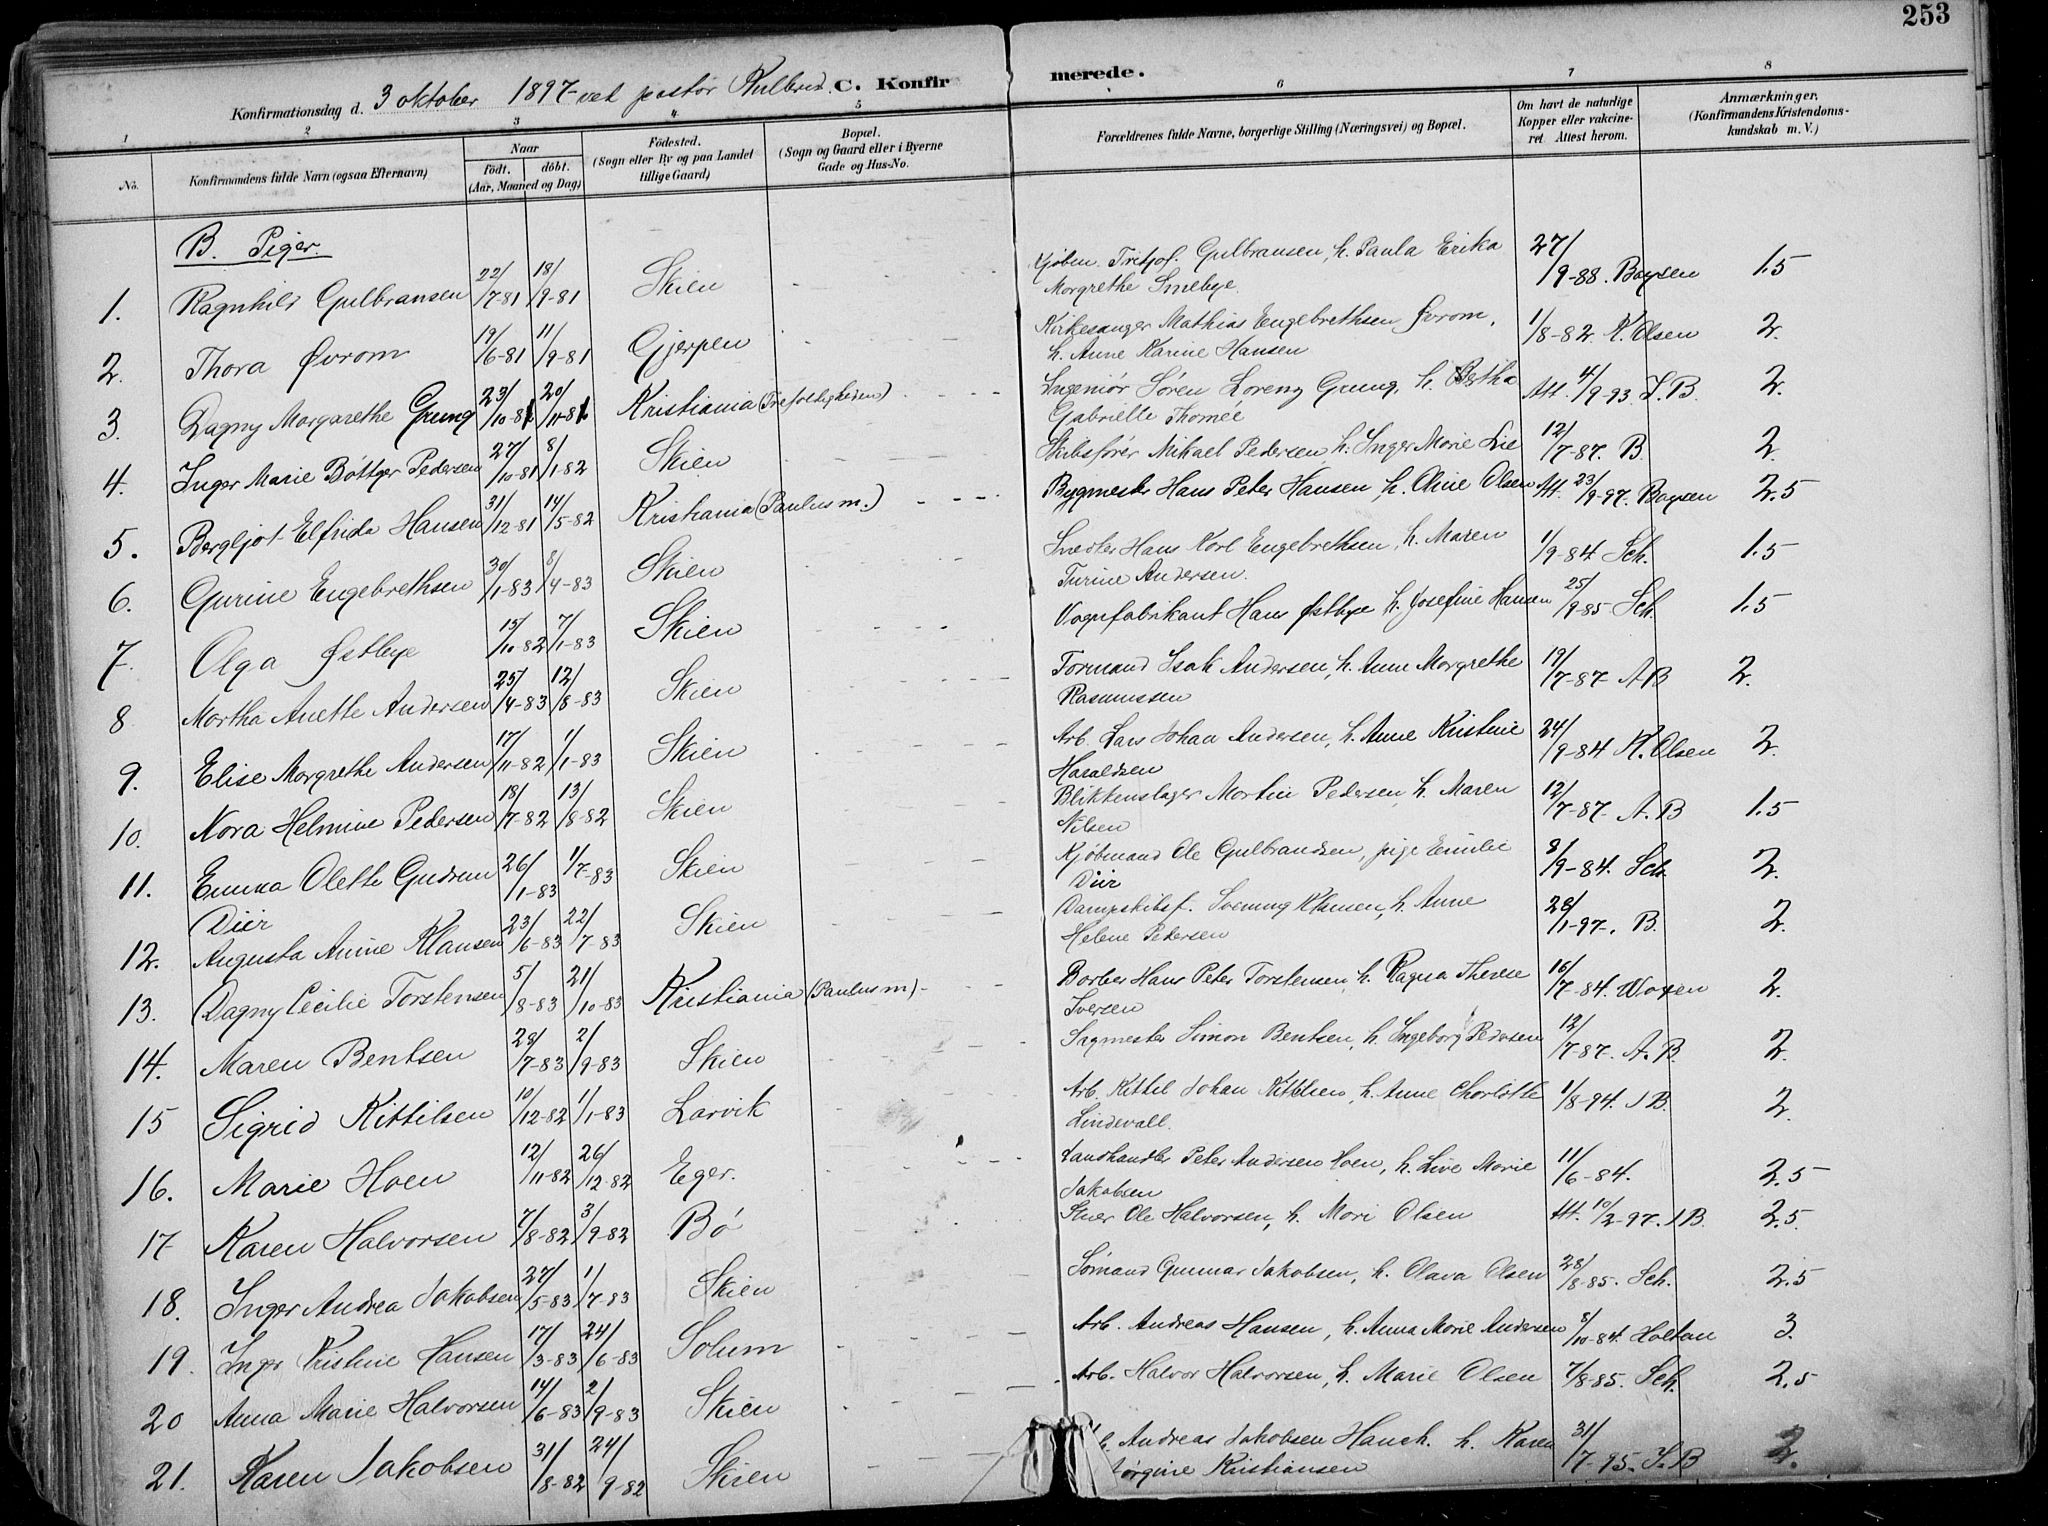 253
Konfirmationsdag d. 3 oktober 1897 ved pastor C. Konfirmerede.
1 2 3 4 5 6 7 8
No. Konfirmandens fulde Navn (ogsaa Efternavn) Naar født. døbt. (Aar, Maaned og Dag) Födested. (Sogn eller By og paa Landet tillige Gaard) Bopæl. (Sogn og Gaard eller i Byerne Gade og Hus-No. Forældrenes fulde Navne, borgerlige Stilling (Næringsvei) og Bopæl. Om havt de naturlige Kopper eller vakcineret. Attest herom. Anmærkninger, (Konfirmandens Kristendomskundskab m. V.)
B. Piger.
1. Ragnhild Gulbransen 22/7-81 18/9-81 Skien Kjøbm. Fritjof Gulbransen, h. Paula Erika 27/9-88. Boysen 1.5
Morgrethe Smebye.
2. Thora Øvrom 19/6-81 11/9-81 Gjerpen Kirkesanger Mathias Engebrethsen Øvrom, 1/8-82 K. Olsen 2.
h. Anne Karine Hansen
3. Dagny Margarethe Grung 23/10-81 20/11-81 Kristiania (Trefoldigheden) Ingeniør Søren Lorenz Grung, h. Betha Att. 4/9-93. J.B. 2.
Gabrielle Thomée
4. Inger Marie Böttger Pedersen 27/10-81 8/1-82 Skien Skibsfører Mikael Pedersen h. Inger Marie Lie 12/7-87. B. 2.
5. Bergljot Elfrida Hansen 31/12-81 14/5-82 Kristiania (Paulus m.) Bygmester Hans Peter Hansen h. Oline Olsen Att. 23/9-97. Boysen 2.5
6. Gurine Engebrethsen 30/1-83 8/4-83 Skien Snedker Hans Karl Engebrethsen, h. Maren 1/9-84 Sch. 1.5
Turine Andersen.
7. Olga Østbye 15/10-82 7/1-83 Skien Vognfabrikant Hans Østbye h. Josefine Hansen 25/9-85 Sch. 1.5
8. Martha Anette Andersen 25/4-83 12/8-83 Skien Formand Isak Andersen, h. Anne Morgrethe 19/7-87 A B 2.
Rasmussen
9. Elise Morgrethe Andersen 17/11-82 1/1-83 Skien Arb. Lars Johan Andersen, h. Anne Kristine 24/9-84 K. Olsen 2.
Haraldsen
10. Nora Helmine Pedersen 18/7-82 13/8-82 Skien Blikkenslager Martin Pedersen, h. Maren 12/7-87. A. B 1.5
Nilsen
11. Emma Olette Gudrun 26/1-83 1/7-83 Skien Kjøbmand Ole Gulbrandsen, pige Emilie 8/9-84. Sch. 2.
Diir Diir
12. Augusta Anine Klausen 23/6-83 22/7-83 Skien Dampskibsf. Svenning Klausen, h. Anne 28/1-97. B. 2.
Helene Pedersen
13. Dagny Cecilie Torstensen 5/8-83 21/10-83 Kristiania (Paulus m) Barber Hans Peter Torstensen, h. Ragna Therese 16/7-84. 2.
Iversen
14. Maren Bentsen 28/7-83 2/9-83 Skien Sagmester Simon Bentsen, h. Ingeborg Pedersen 12/7-87. A. B. 2.
15 Sigrid Kittilsen 10/12-82 1/1-83 Larvik Arb. Kittil Johan Kittilsen, h. Anne Charlotte 1/8-94. J B. 2.
Lindevall.
16. Marie Hoen 12/11-82 26/12-82 Eger. Landhandler Peter Andersen Hoen, h. Live Marie 11/6-84. 2.5
Jakobsen
17 Karen Halvorsen 7/8-82 3/9-82 Bø Ole Halvorsen, h. Mari Olsen Att. 10/2-97. J B. 2.5.
18. Inger Andrea Jakobsen 27/5-83 1/7-83 Skien Sømand Gunnar Jakobsen, h. Olava Olsen 28/8-85. Sch. 2.5
19. Inger Kristine Hansen 17/3-83 24/6-83 Solum Arb. Andreas Hansen, h. Anna Marie Andersen 8/10-84. Holtan 3.
20 Anna Marie Halvorsen 14/6-83 2/9-83 Skien Arb. Halvor Halvorsen, h. Marie Olsen 7/8-85. Sch. 2,5
21. Karen Jakobsen 31/8-82 24/9-82 Skien Andreas Jakobsen h. Karen 31/7-95. J. B 2.
Jørgine Kristiansen